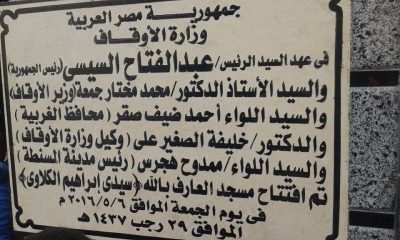 جمهورية مصر العربية
وزارة الأوقاف
فى عهد السيد الرئيس/عبدالفتاح السيسى (رئيس الجمهورية)
والسيد الأستاذ الدكتور/محمد مختار جمعة(وزير الأوقاف)
والسيد اللواء أحمد ضيف صقر (محافظ الغربية)
والدكتور/خليفة الصغير على (وكيل وزارة الأوقاف)
والسيد اللواء/ممدوح هجرس (رئيس مدينة السنطة)
تم افتتاح مسجد العارف بالله (سيدى إبراهيم الكلاوى)
فى يوم الجمعة الموافق ٢٠١٦/٥/٦م
الموافق ٢٩ رجب ١٤٣٧هـ